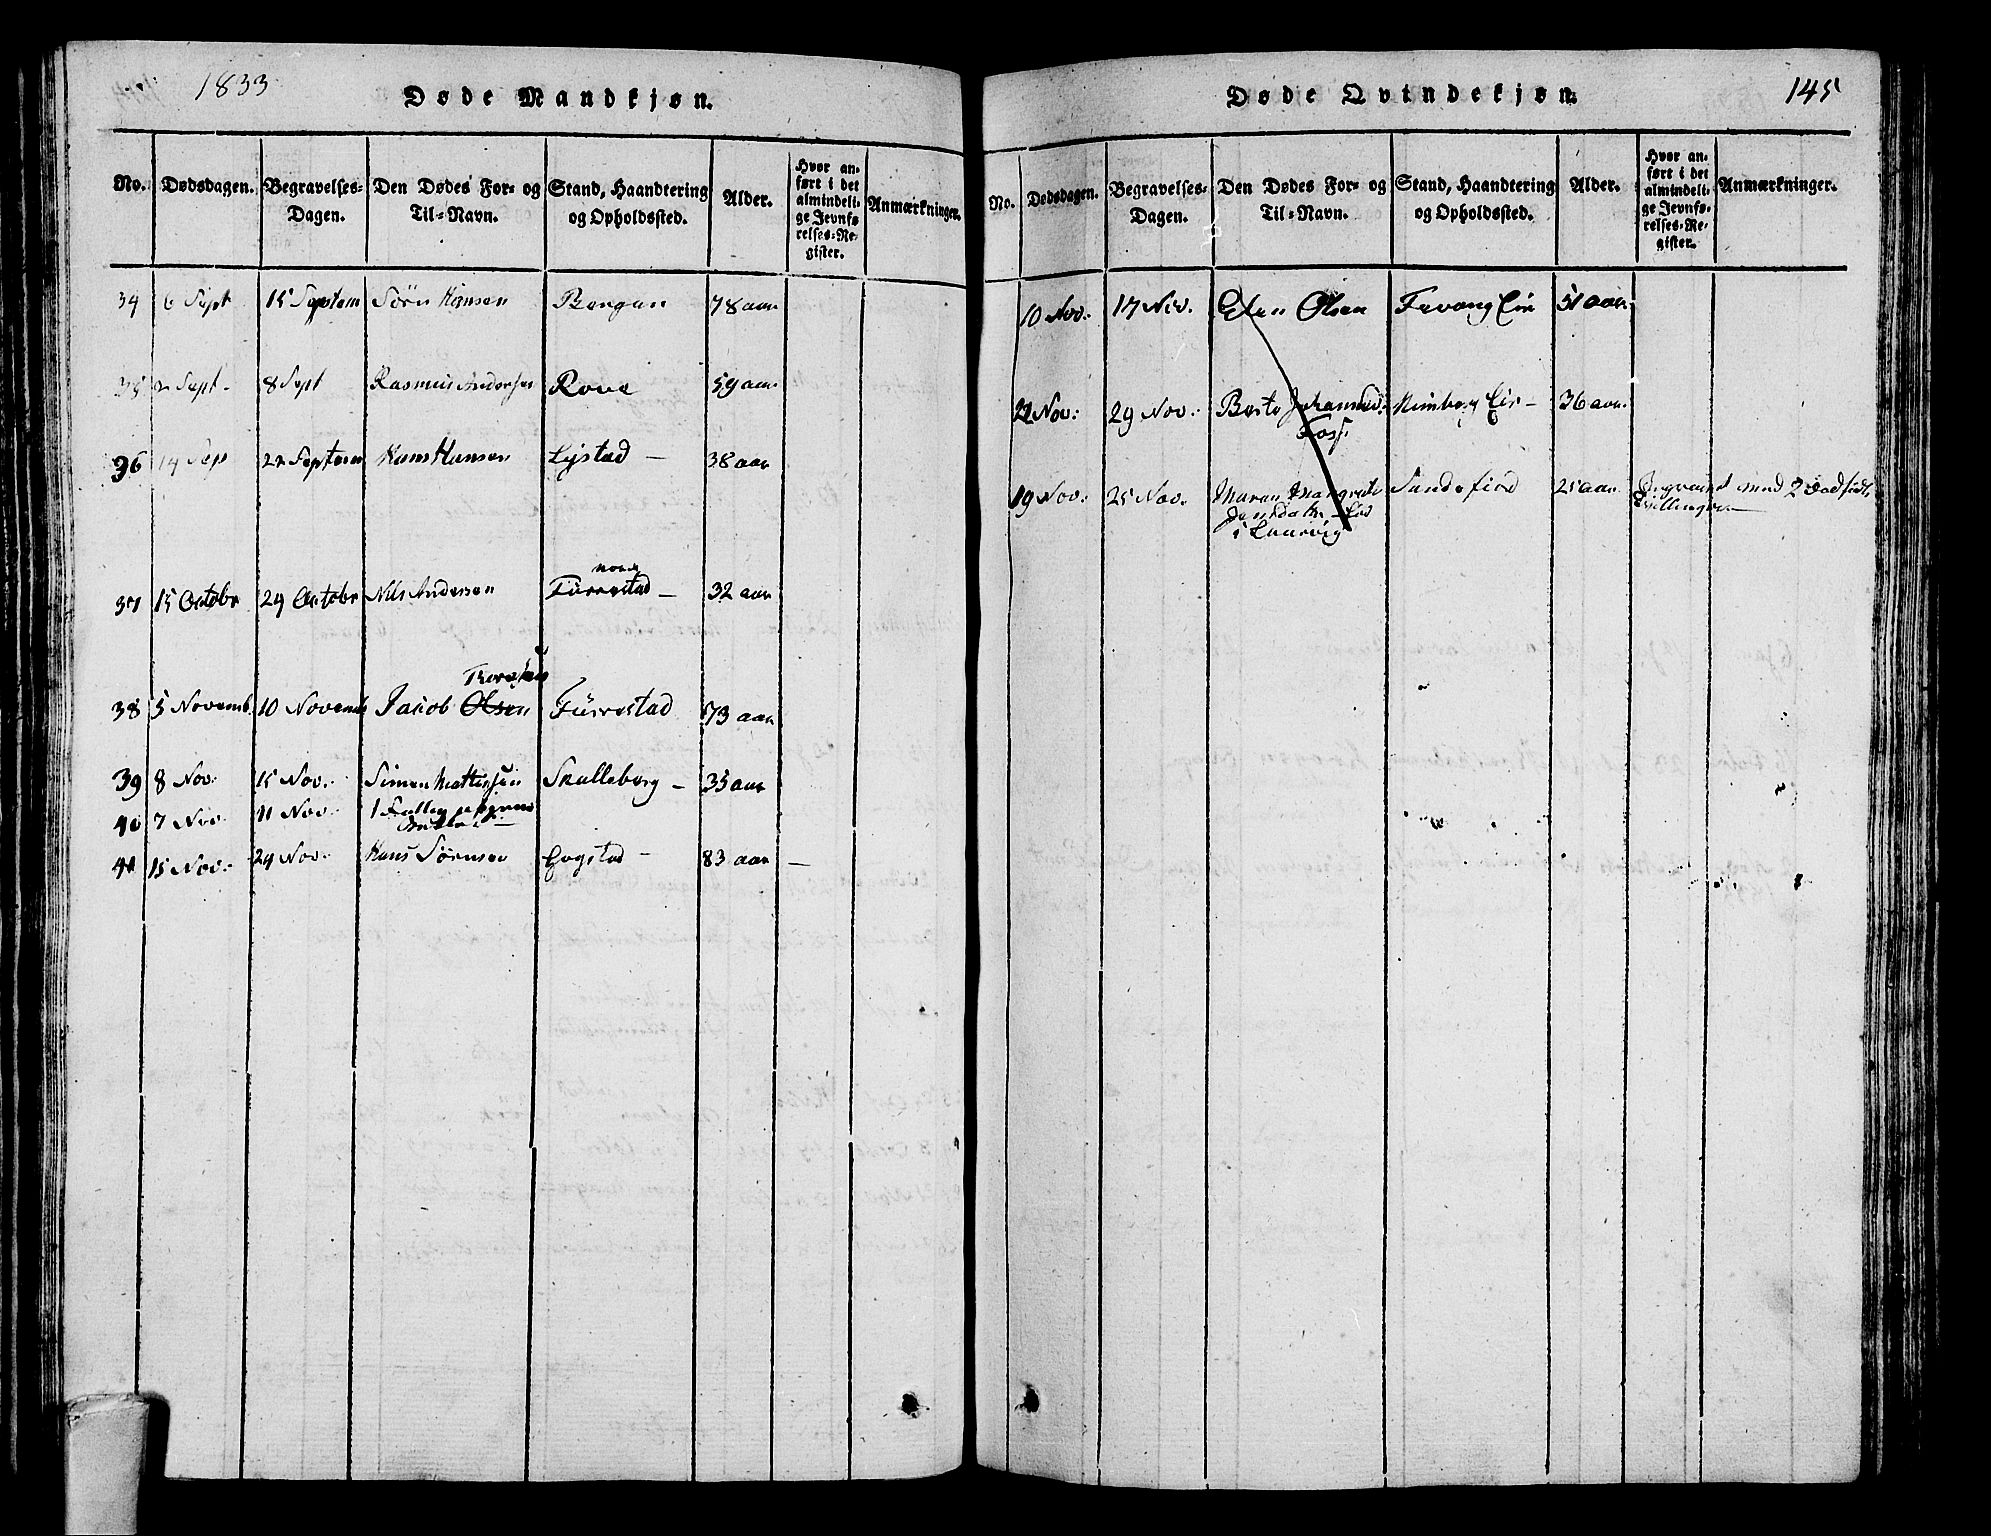 1833
Døde Mandkjøn.
No. Dødsdagen. Begravelses-Dagen. Den Dødes For- og Til-Navn. Stand, Haandtering og Opholdssted. Alder. Hvor anført i det almindelige Jevnførelses-Register. Anmærkninger.
34 6 Sept 15 Septem Sörn Hansen Bergan 78 aar
35 2 Sept. 8 Sept Rasmus Andersen Rove 59 aar
36 14 Sep 22 Septem Hans Hansen Lystad — 38 aar
37 15 Octobr 24 Octobr Nils Andersen Fürrestad — 32 aar
38 5 Novemb. 10 Novemb Jacob Olsen Fürrestad 73 aar
39 8 Nov: 15 Nov: Simen Mattissen Skalleberg — 35 aar
40 7 Nov 11 Nov: 1
41 15 Nov: 24 Nov: Hans Sörnsen 83 aar —
Døde Qvindekjøn.
145
No. Dødsdagen. Begravelses-Dagen. Den Dødes For- og Til-Navn. Stand, Haandtering og Opholdssted. Alder. Hvor anført i det almindelige Jevnførelses-Register. Anmærkninger.
10 Nov: 17 Nov. Elen Olsen Fevang Eie 51 aar
22 Nov: 29 Nov: Berte 36 aar
19 Nov: 25 Nov. Maren Margrete Sandefiord 25 aar med 2
i Laurvig